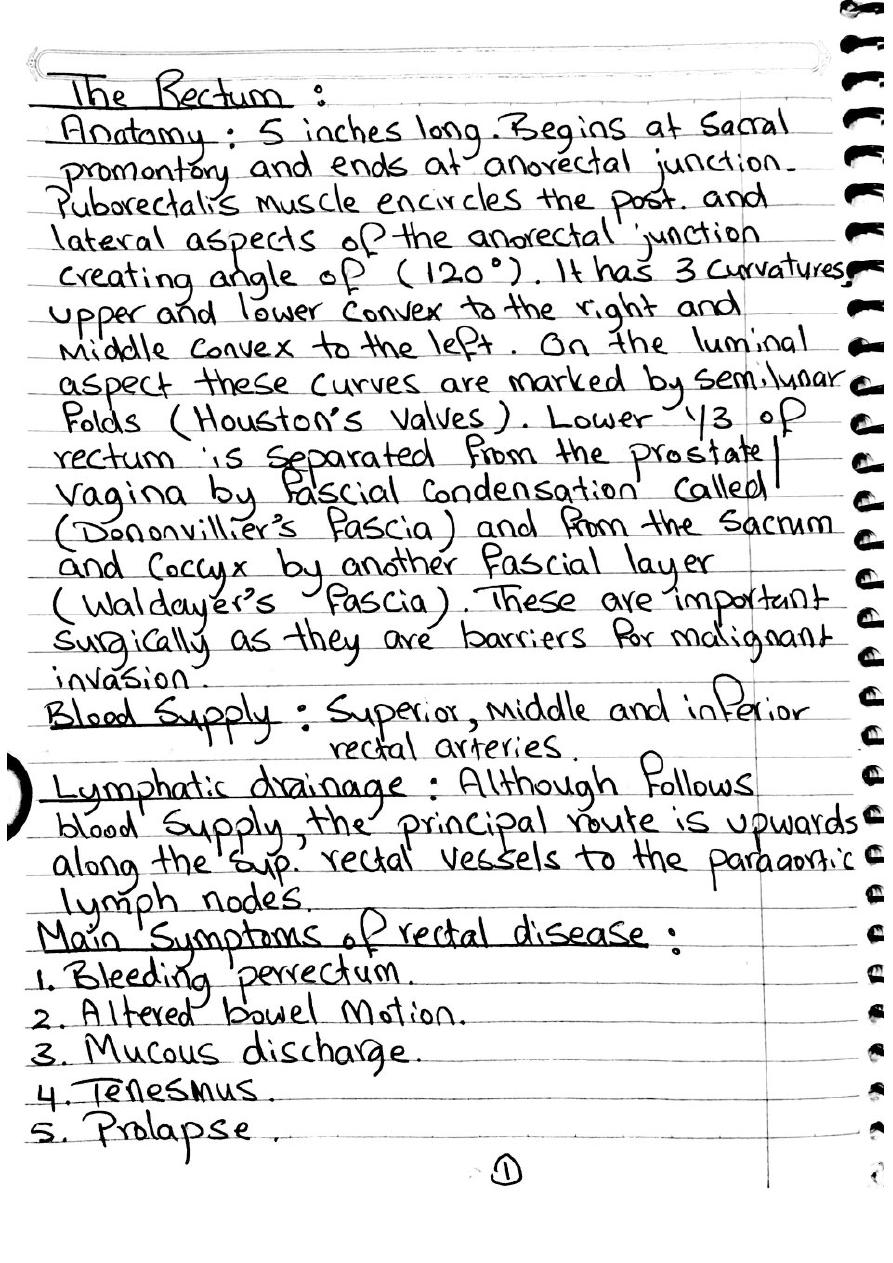 The Rectum :
Anatomy : 5 inches long. Begins at Sacral
promontory and ends at anorectal junction.
Puborectalis muscle encircles the post. and
lateral aspects of the anorectal junction
creating angle of (120°). It has 3 curvatures,
upper and lower convex to the right and
middle convex to the left. On the luminal
aspect these curves are marked by semilunar
folds (Houston's valves). Lower 1/3 of
rectum is separated from the prostate/
vagina by fascial condensation called
(Dononvillier's fascia) and from the sacrum
and coccyx by another fascial layer
(Waldayer's fascia). These are important
surgically as they are barriers for malignant
invasion.
Blood Supply : Superior, middle and inferior
rectal arteries.
Lymphatic drainage : Although follows
blood supply, the principal route is upwards
along the sup. rectal vessels to the paraaortic
lymph nodes.
Main Symptoms of rectal disease :
1. Bleeding perrectum.
2. Altered bowel motion.
3. Mucous discharge.
4. Tenesmus.
5. Prolapse.
1